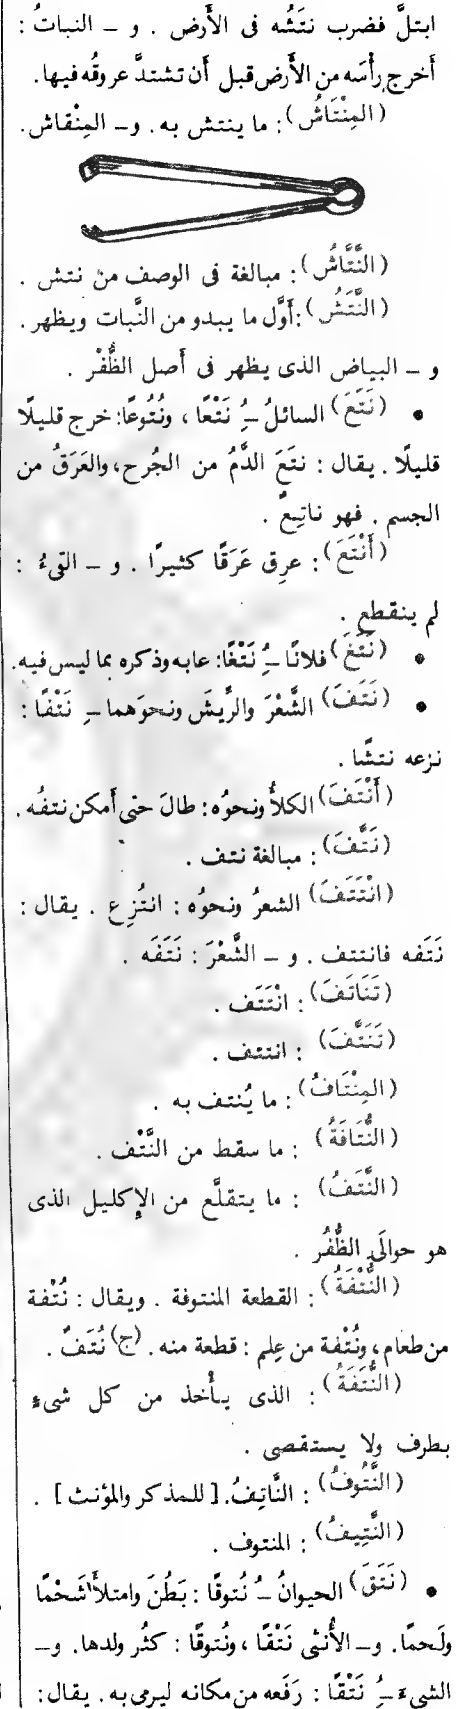 ابتلَّ فضرب نتَشُه فى الأَرض . و – النباتُ :
أَخرج رأْسَه من الأَرض قبل أَن تشتدَّ عروقُه فيها.
(المِنْتَاشُ): ما ينتش به. و– المِنْقاش.
(النَّتَّاشُ): مبالغة فى الوصف من نتش .
(النَّتَشُ): أَوَّل ما يبدو من النَّبات ويظهر.
و – البياض الذى يظهر فى أَصل الظُّفْر .
• (نَتَعَ) السائلُ ـُِ نَتْعًا ، ونُتُوعًا: خرج قليلًا
قليلًا . يقال : نتَعَ الدَّمُ من الجُرح، والعَرَقُ من
الجسم . فهو ناتِعٌ .
(أَنْتَعَ): عرِق عَرَقًا كثيرًا . و – القىءُ :
لم ينقطع .
• (نَتَغَ) فلانًا ـُِ نَتْغًا: عابه وذكره بما ليس فيه.
• (نَتَفَ) الشَّعْرَ والرِّيشَ ونحوَهما ـِ نَتْفًا :
نزعه نتشًا .
(أَنْتَفَ) الكلأُ ونحوُه: طالَ حتى أَمكن نتفُه .
(نَتَّفَ) : مبالغة نتف .
(انْتَتَفَ) الشعرُ ونحوُه : انتُزِع . يقال :
نَتَفه فانتتف . و – الشَّعْرَ : نَتَفَه .
(تَنَاتَفَ) : انْتَتَف .
(تَنَتَّفَ) : انتتف .
(المِنْتَافُ) : ما يُنتف به .
(النُّتَافَةُ) : ما سقط من النَّتْف .
(النَّتَفُ) : ما يتقلَّع من الإِكليل الذى
هو حوالَىِ الظُّفُر .
(النُّتْفَةُ) : القطعة المنتوفة . ويقال : نُتْفة
من طعام، ونُتْفة من عِلم : قطعة منه. (ج) نُتَفٌ .
(النُّتَفَةُ) : الذى يأْخذ من كل شىءٍ
بطرف ولا يستقصى .
(النَّتُوفُ) : النَّاتِفُ. [للمذكر والمؤنث] .
(النَّتِيفُ) : المنتوف .
• (نَتَقَ) الحيوانُ ـُ نُتوقًا : بَطُنَ وامتلأَ شَحْمًا
ولَحمًا. و– الأُنثى نَتْقًا ، ونُتوقًا : كثُر ولدها. و–
الشىءَ ـُِ نَتْقًا : رَفَعه من مكانه ليرمى به. يقال :